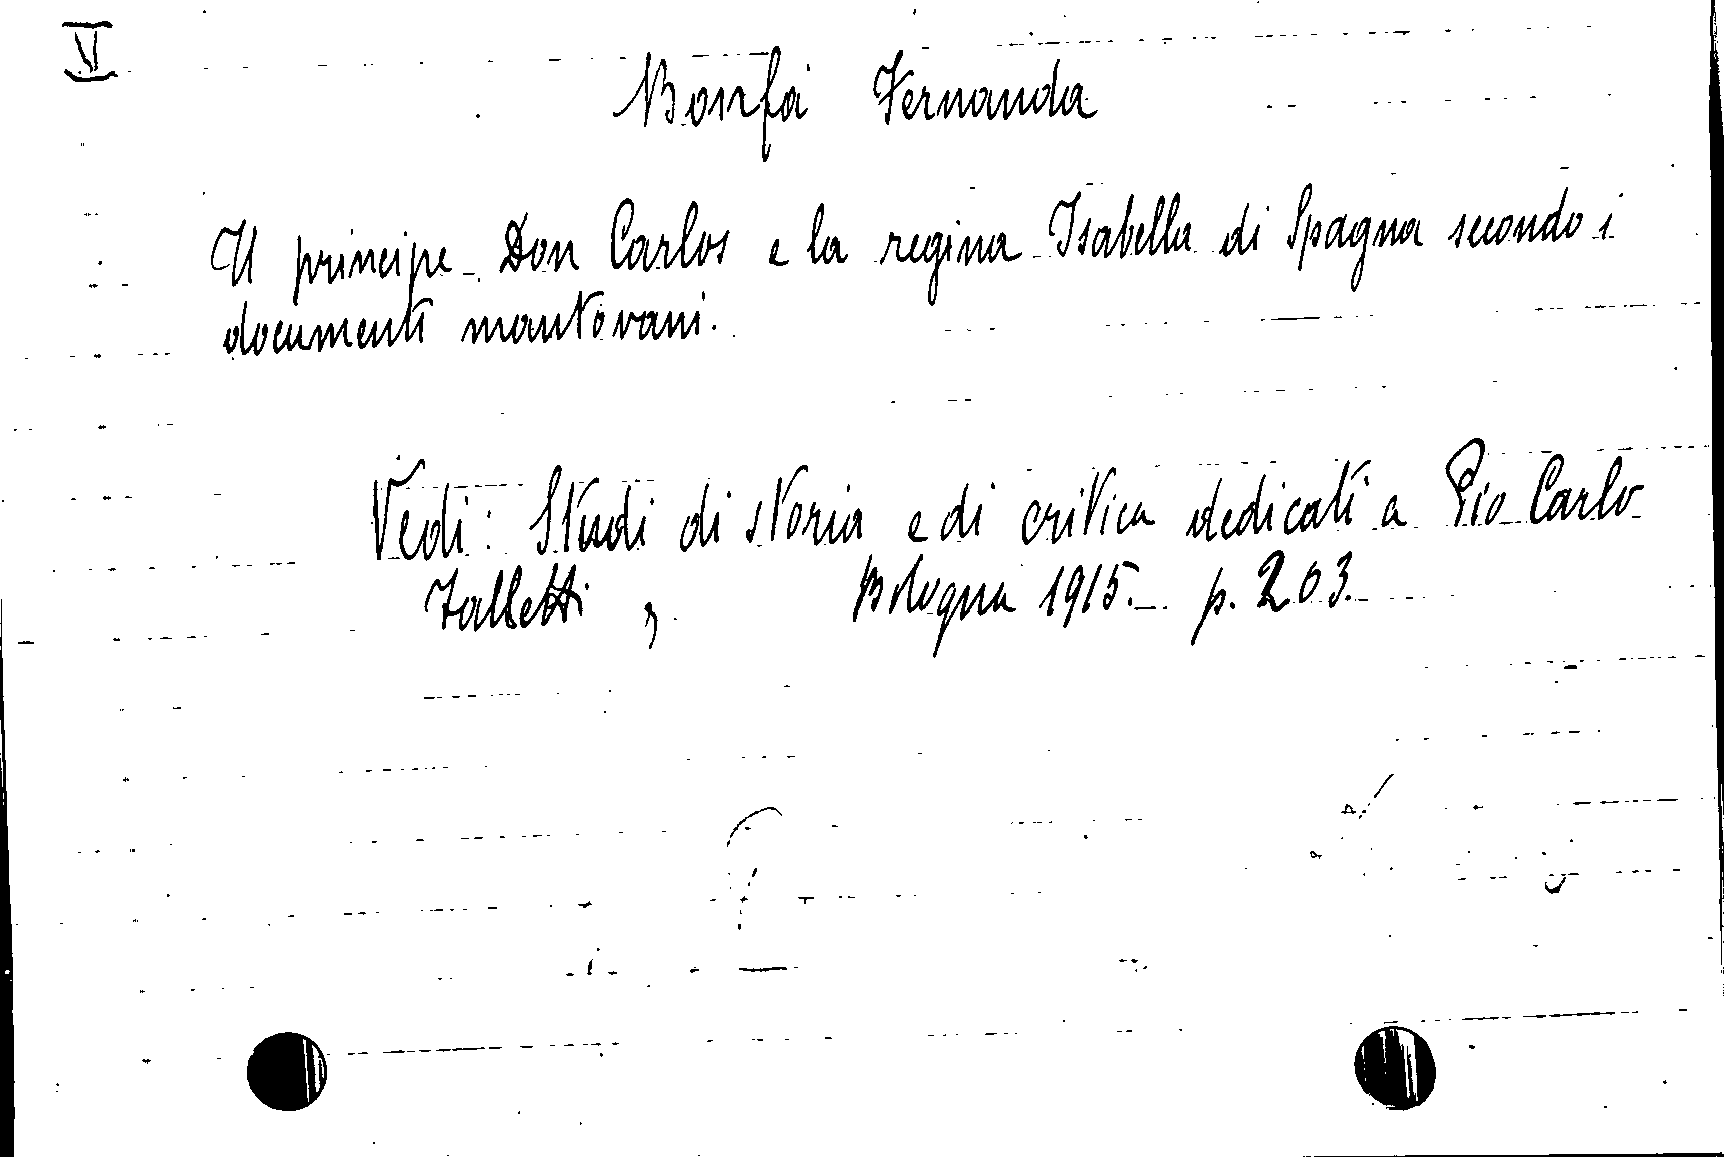 V
Bonfà Fernanda
Il principe Don Carlos e la regina Isabella di Spagna secondo i
documenti mantovani.
Vedi: Studi di storia e di critica dedicati a Pio Carlo
Falletti, Bologna 1915. p. 203.